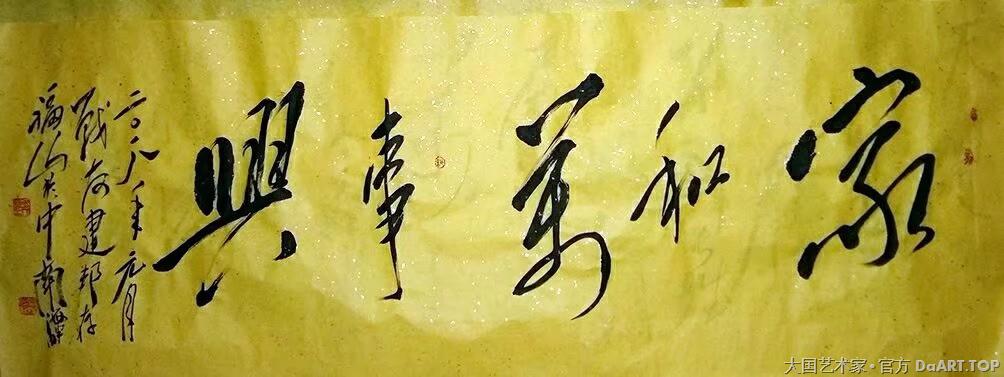 家和萬事興
二〇一八年元月
戰海建邦存
福山於中南海
大国艺术家·官方 DaART.TOP